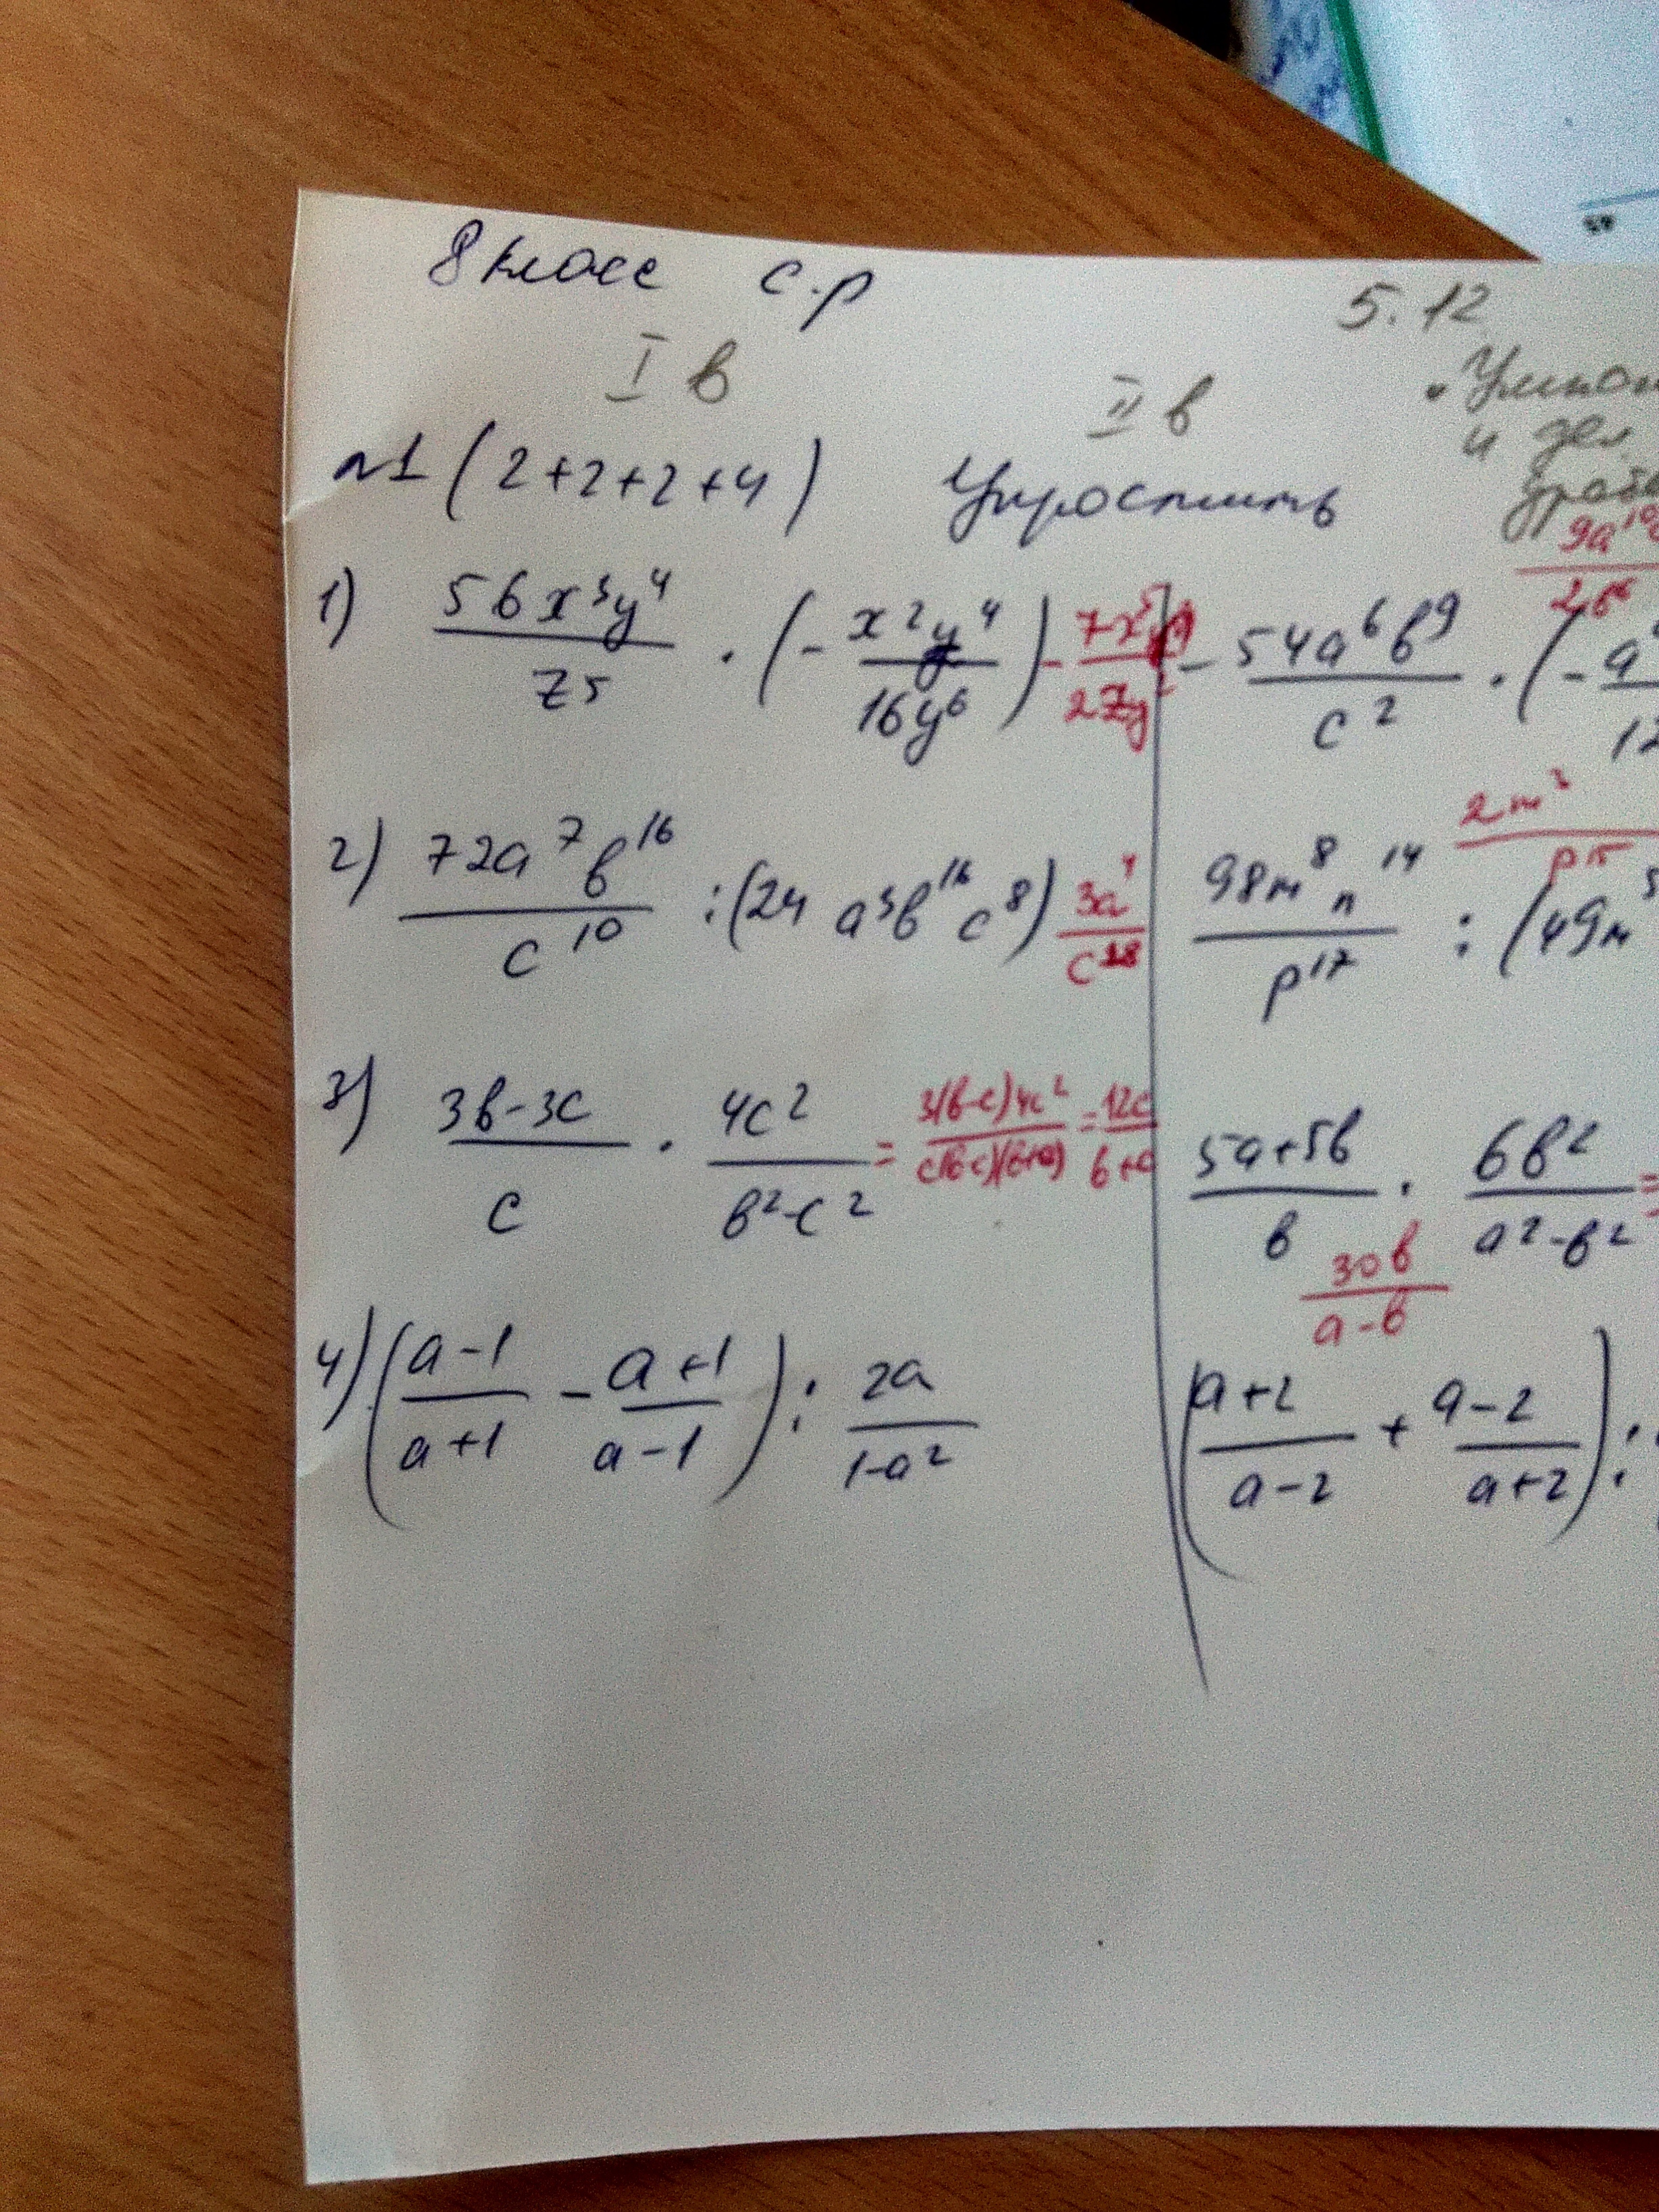 8 класс с.р
5.12
I в
II в
Умнож
и дел.
дроб
№1 (2+2+2+4) Упростить
1) 56x³y⁴/z5 · (- x²y⁴/16y⁶) - 7x⁵/2zy²
- 54a⁶b⁹/c² · (- a/12 9a¹⁰/2b⁶
2) 72a⁷b¹⁶/c¹⁰ : (24 a³b¹⁶c⁸) 3a⁴/c¹⁸
98m⁸n¹⁴/p¹⁷ : (49m⁵ 2m³/p¹⁵
3) 3b-3c/c · 4c²/b²-c² = 3(b-c)4c²/c(b-c)(b+c) = 12c/b+c
5a+5b/b · 6b²/a²-b² =
30b/a-b
4) (a-1/a+1 - a+1/a-1) : 2a/1-a²
(a+2/a-2 + a-2/a+2) :